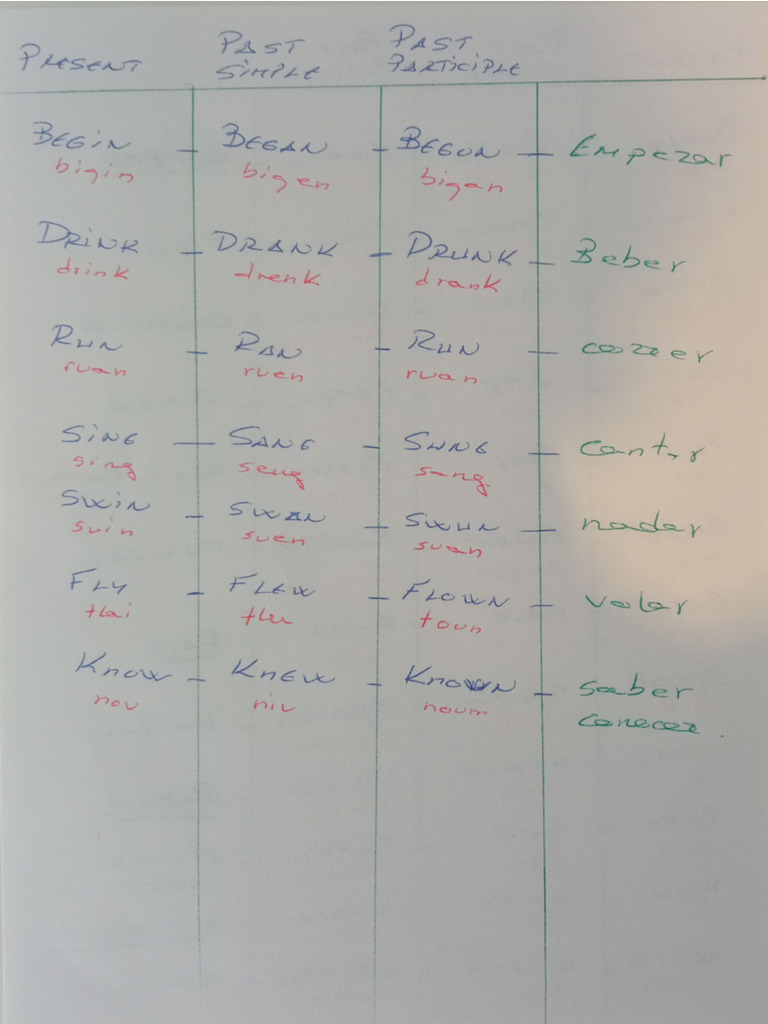 PRESENT PAST SIMPLE PAST PARTICIPLE
BEGIN - BEGAN - BEGUN - EMPEZAR
bigin bigen bigan
DRINK - DRANK - DRUNK - Beber
drink drenk drank
RUN - RAN - RUN - correr
ruan ruen ruan
SING - SANG - SUNG - cantar
sing seng sang
SWIN - SWAN - SWUN - nadar
suin suen suan
FLY - FLEW - FLOWN - volar
flai flu floun
KNOW - KNEW - KNOWN - saber
nou niu noum
conocer